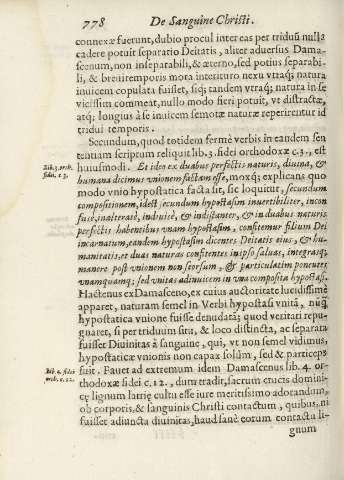 778 De Sanguine Christi.
connexæ fuerunt, dubio procul inter eas per triduũ nulla
cadere potuit separatio Deitatis, aliter aduersus Dama-
scenum, non inseparabili, & æterno, sed potius separabi-
li, & breui temporis mora interituro nexu vtraq; natura
inuicem copulata fuisset, siq; tandem vtraq; natura in se
vicissim commeat, nullo modo fieri potuit, vt distractæ,
atq; longius à se inuicem semotæ naturæ reperirentur id
tridui temporis.
Secundum, quod totidem fermè verbis in eandem sen-
tentiam scriptum reliquit lib. 3. fidei orthodoxæ c. 3., est
Lib. 3. orth.
fidei, c. 3.
huiusmodi. Et ideo ex duabus perfectis naturis, diuina, &
humana dicimus vnionem factam esse, moxq; explicans quo
modo vnio hypostatica facta sit, sic loquitur, secundum
compositionem, idest secundum hypostasim inuertibiliter, incon
fusè, inalterasè, indiuisè, & indistanter, & in duabus naturis
perfectis habentibus vnam hypostasim, confitemur filium Dei
incarnatum, eandem hypostasim dicentes Deitatis eius, & hu-
manitatis, et duas naturas confitentes in ipso saluas, integrasq;
manere post vnionem non seorsum, & particulatim ponentes
vnamquamq; sed vnitas adinuicem in vna composita hypostasi.
Hactenus ex Damasceno, ex cuius auctoritate lucidissimè
apparet, naturam semel in Verbi hypostasi vnitã, nũq;
hypostatica vnione fuisse denudatã; quod veritati repu-
gnaret, si per triduum situ, & loco distincta, ac separata
fuisset Diuinitas à sanguine, qui, vt non semel vidimus,
hypostaticæ vnionis non capax solùm, sed & particeps
fuit. Fauet ad extremum idem Damascenus lib. 4. or-
Lib. 4. fidei
orth. c. 12.
thodoxæ fidei c. 12., dum tradit, sacrum crucis domini-
cę lignum latrię cultu esse iure meritissimo adorandum,
ob corporis, & sanguinis Christi contactum, quibus, ni
fuisset adiuncta diuinitas, haud sanè eorum contactu li-
gnum